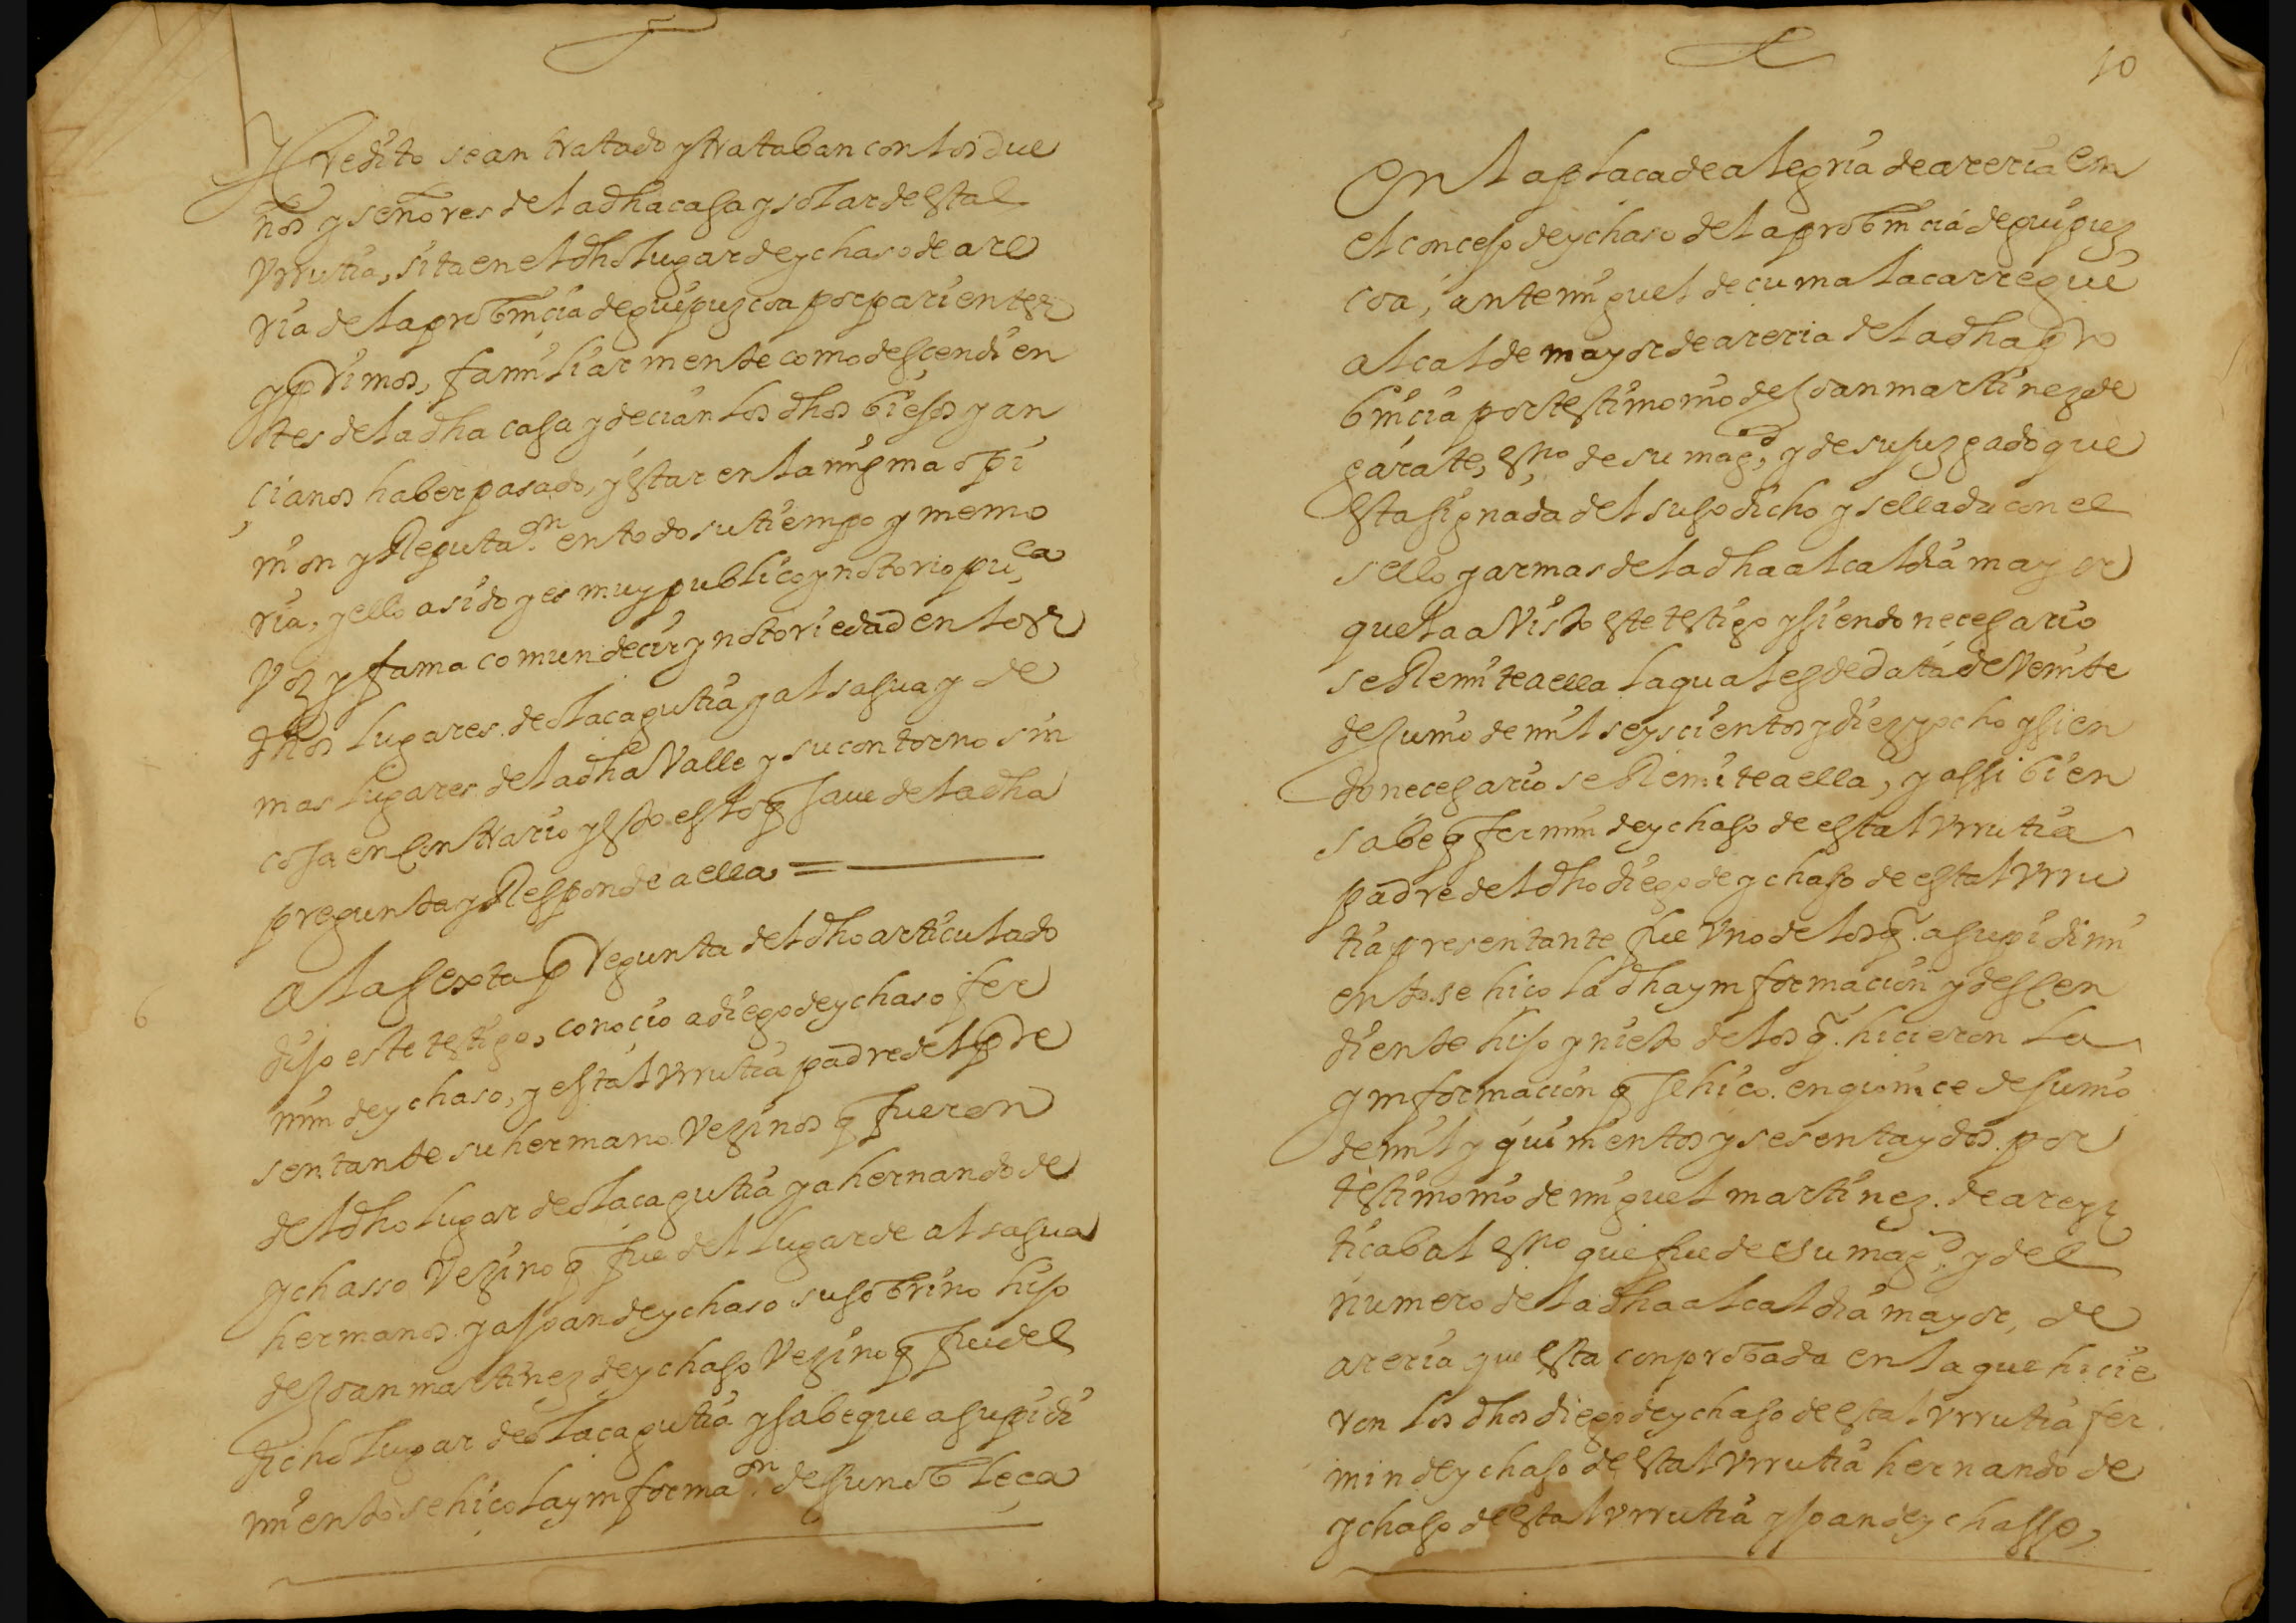 y Credito se an tratado y trataban con los due
nos y señores de la dha casa y solar de estal
Vrrutia, sita en el dho lugar de ychaso de are
ria de la probincia de guipuzcoa por parientes
y primos, familiarmente como desçendien
tes de la dha casa y decian los dhos biejos y an
çianos haber pasado, y estar en la misma opi
nion y Reputaon en todo su tiempo y memo
ria, y ello a sido y es muy publico y notorio puca
voz y fama comun decir y notoriedad en los
dhos lugares de olacagutia y alsasua y de
mas lugares de la dha Valle y su contorno sin
cosa en Contrario y esto es lo q saue de la dha
pregunta y Responde a ella =
6
A la sexta pregunta del dho articulado
dijo este testigo, conocio a diego de ychaso fer
min de ychaso, y estal vrrutia padre del pre
sentante su hermano Vezinos q fueron
del dho lugar de olacagutia y a hernando de
ychasso Vezino q fue del lugar de alsasua
hermanos y a Joan de ychaso su sobrino hijo
de Joan martinez de ychaso Vezino q fue del
dicho lugar de olacagutia y sabe que a su pidi
miento se hico la ynformaon de su nobleça
10
En la plaça de alegria de areria en
el concejo de ychaso de la probincia de guipuz
coa, ante miguel de cumalacarregui
alcalde mayor de areria de la dha pro
bincia por testimonio de Joan martinez de
garate, esno de su magd y de su juzgado que
esta signada del susodicho y sellada con el
sello y armas de la dha alcaldia mayor
que la a visto este testigo y siendo necesario
se Remite a ella la qual es de data de veinte
de Junio de mil seyscientos y diez y ocho y sien
do necesario se Remite a ella, y assi bien
sabe q fermin de ychaso de estal vrrutia
padre del dho diego de ychaso de estal vrru
tia presentante fue Vno de los q a su pidimi
ento se hico la dha ynformacion y desCen
diente hijo y nieto de los q hicieron la
ynformacion q se hico en quince de Junio
de mil y quinientos y sesenta y dos por
testimonio de miguel martinez de arez
ticabal esno que fue de su magd y del
numero de la dha alcaldia mayor, de
areria que esta conprobada en la que hicie
ron los dhos diego de ychaso de estal vrrutia fer
min de ychaso de estal vrrutia hernando de
ychaso de estal vrrutia y Joan de ychasso,